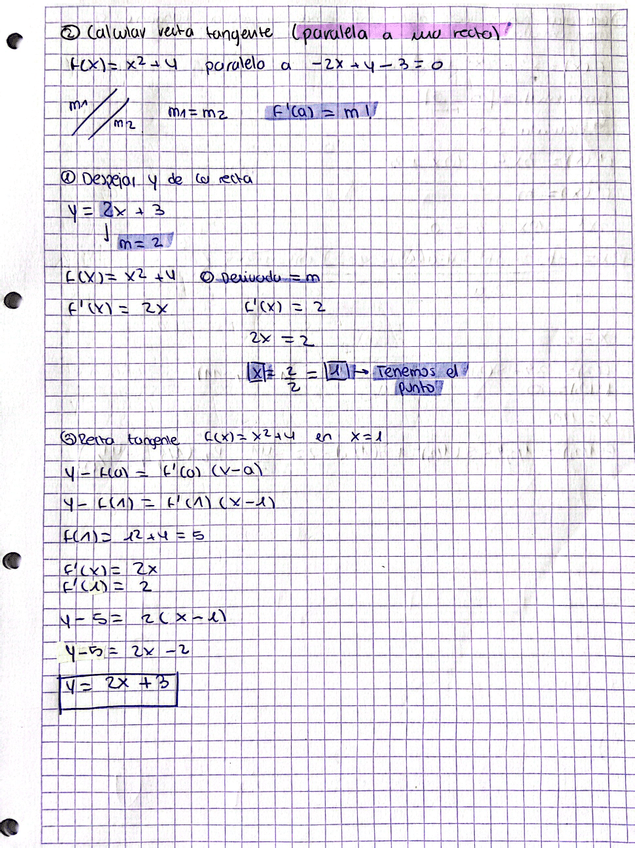 ② Calcular recta tangente (paralela a una recta)
f(x) = x² + 4 paralela a -2x + y - 3 = 0
m1 m2 m1 = m2 f'(a) = m!
① Despejar y de la recta
y = 2x + 3
↓ m = 2
f(x) = x² + 4 ② Derivada = m
f'(x) = 2x f'(x) = 2
2x = 2
x = 2/2 = 1 → Tenemos el punto
③ Recta tangente f(x) = x² + 4 en x = 1
y - f(a) = f'(a) (x - a)
y - f(1) = f'(1) (x - 1)
f(1) = 1² + 4 = 5
f'(x) = 2x
f'(1) = 2
y - 5 = 2(x - 1)
y - 5 = 2x - 2
y = 2x + 3